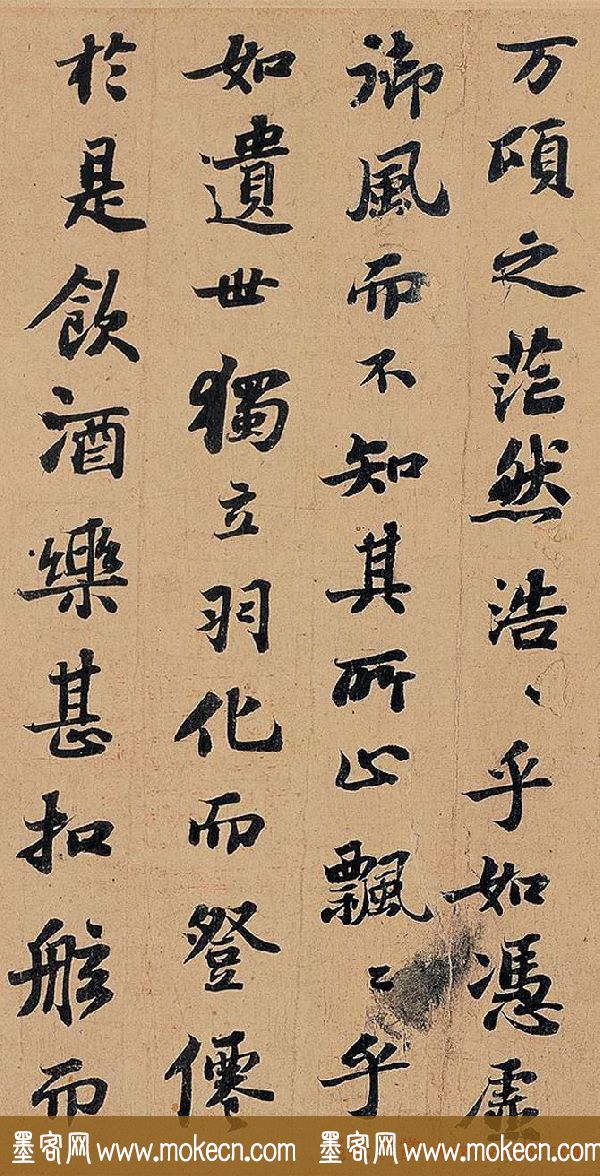 万頃之茫然浩〻乎如憑虛
御風而不知其所止飄〻乎
如遺世獨立羽化而登僊
於是飲酒樂甚扣舷而
墨客网 www.mokecn.com 墨客网 www.mokecn.com